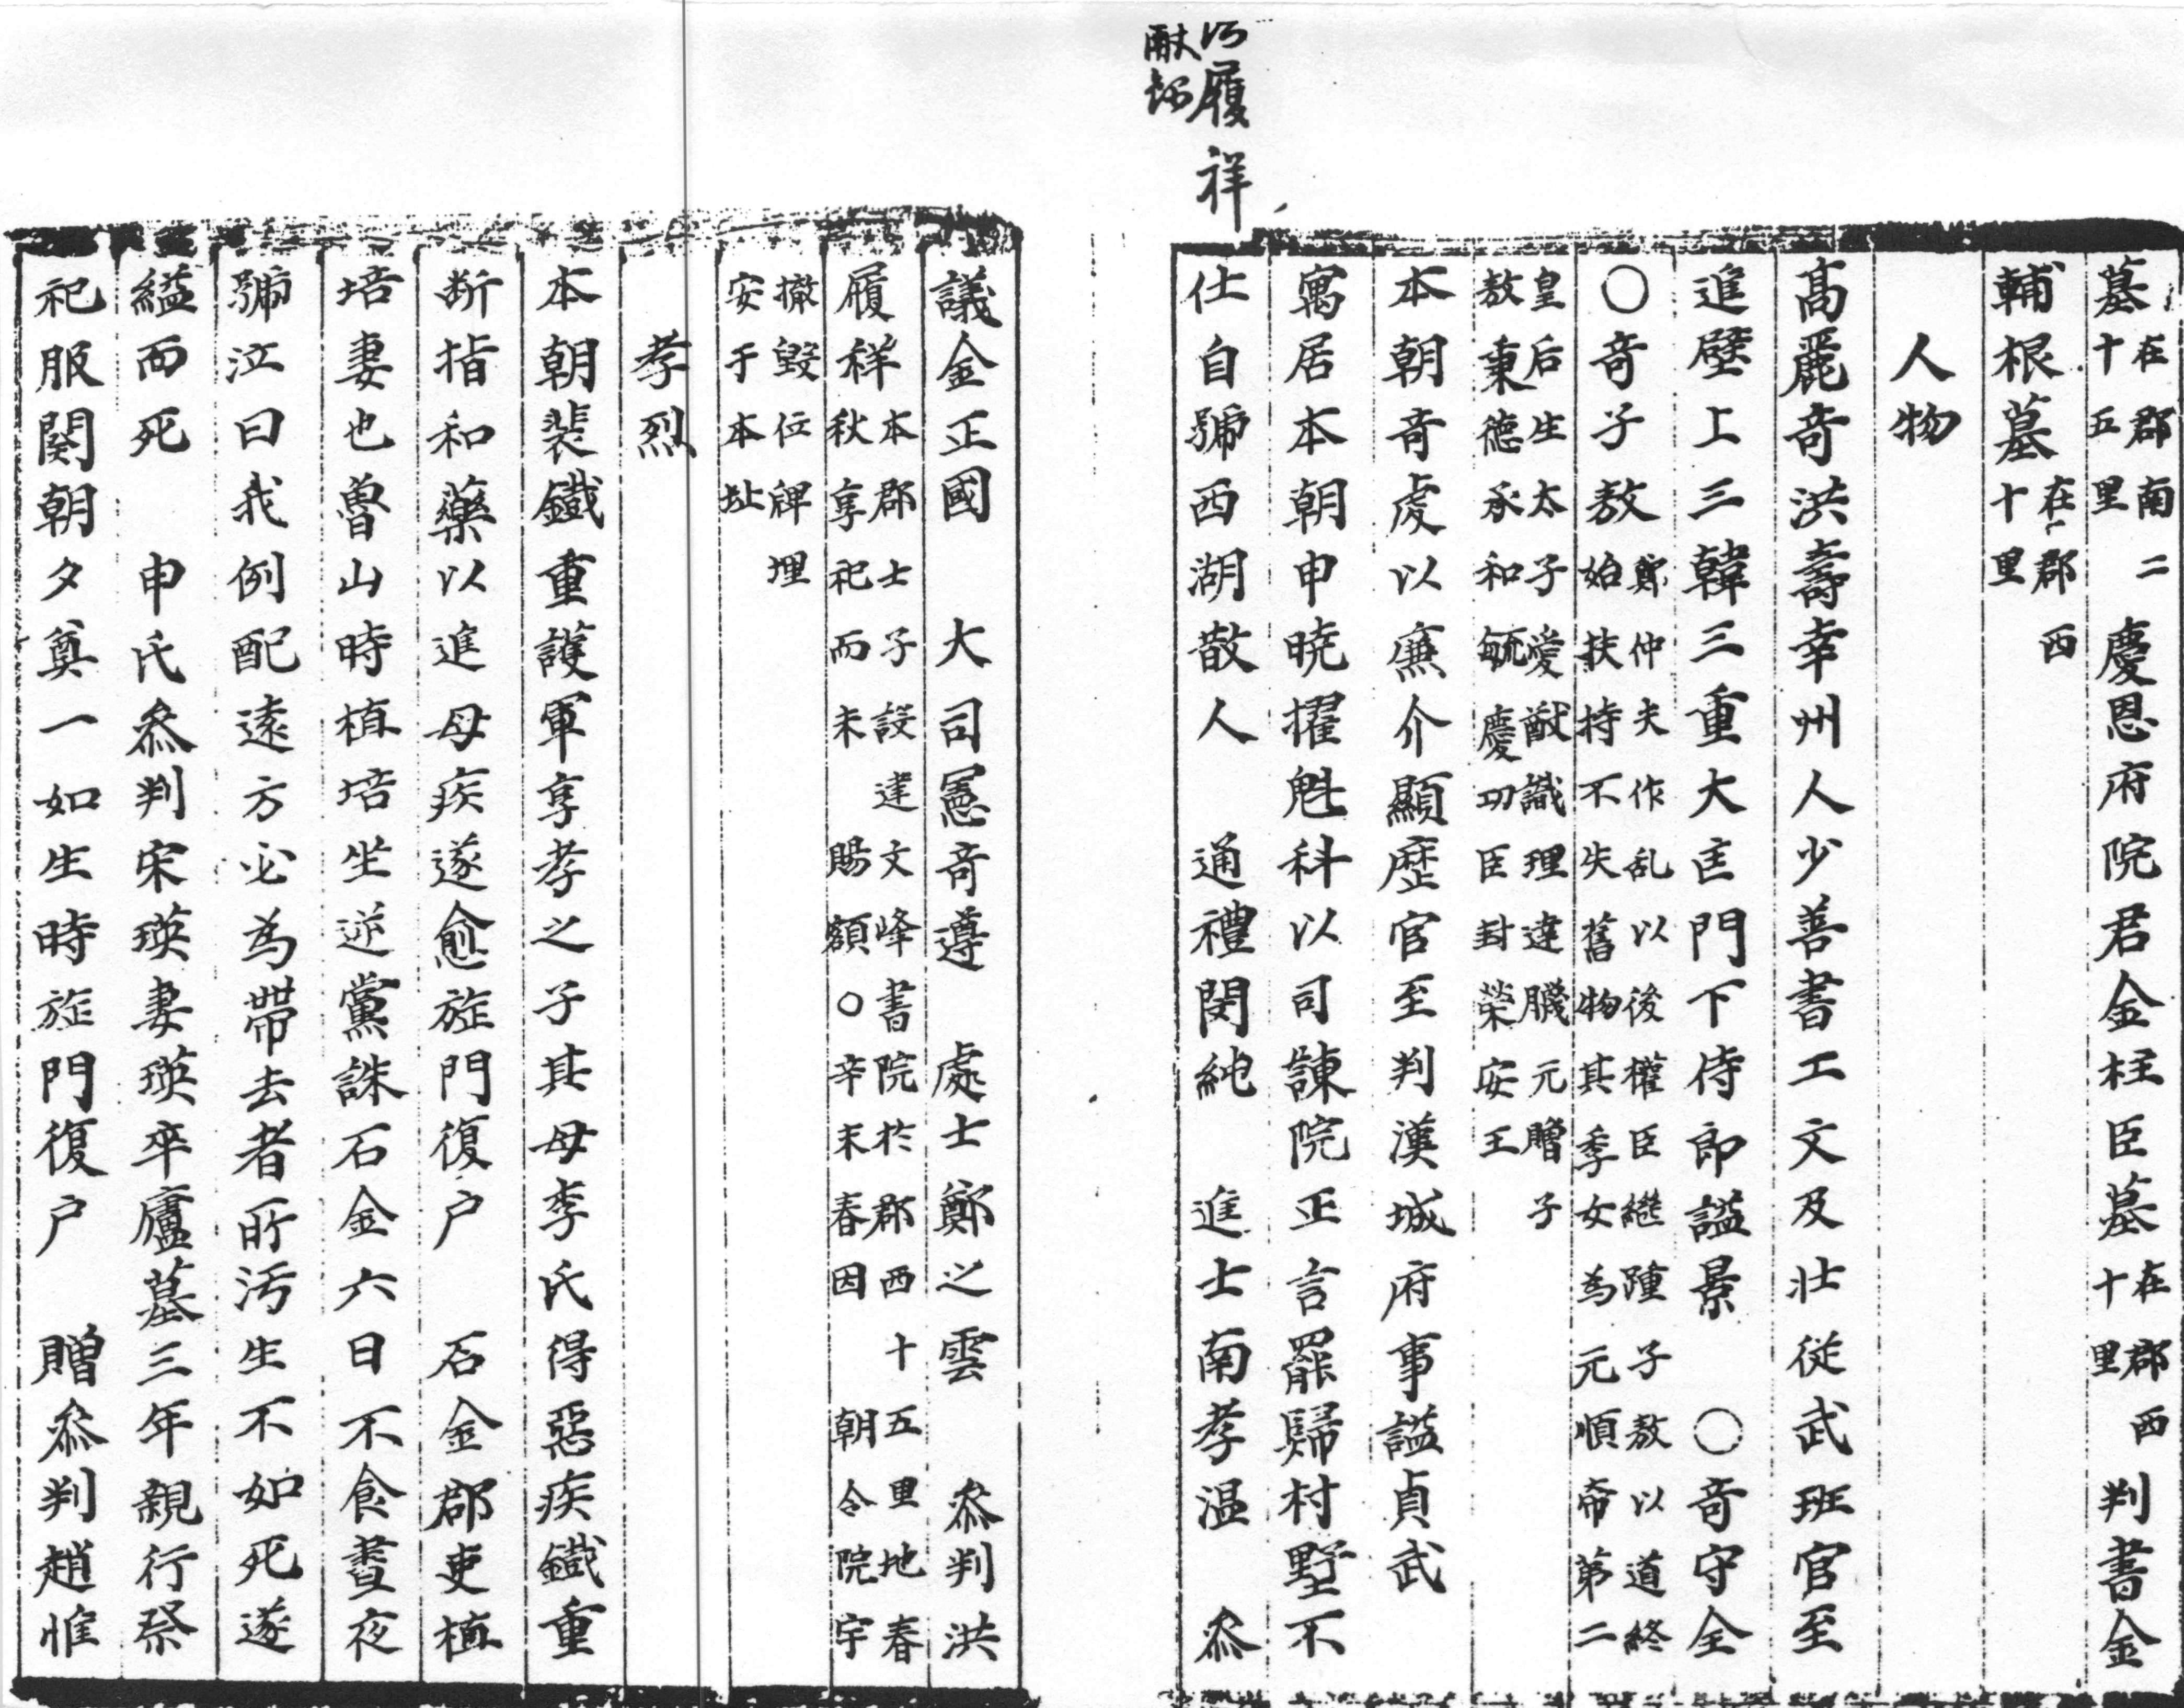 履祥
墓在郡南二十五里 慶恩府院君金柱臣墓在郡西十里 判書金
輔根墓在郡西十里
人物
高麗奇洪壽幸州人少善書工文及壮從武班官至
進壁上三韓三重大匡門下侍郎謚景 〇奇守全
〇奇子敖鄭仲夫作乱以後權臣継踵子敖以道終始扶持不失舊物其季女為元順帝第二
皇后生太子愛猷識理達臘元贈子敖秉德承和毓慶功臣封榮安王
本朝奇虔以廉介顯歴官至判漢城府事謚貞武
寓居本朝申曉擢魁科以司諫院正言罷歸村墅不
仕自號西湖散人 通禮閔純 進士南孝温 叅
議金正國 大司憲奇遵 處士鄭之雲 叅判洪
履祥本郡士子設建文峰書院於郡西十五里地春秋享祀而未 賜額〇辛未春因 朝令院宇
撤毀位碑埋安于本址
孝烈
本朝裴鐵重護軍享孝之子其母李氏得惡疾鐵重
断指和藥以進母疾遂愈旌門復户 石金郡吏植
培妻也魯山時植培坐逆黨誅石金六日不食晝夜
號泣曰我例配遠方必為帶去者所汚生不如死遂
縊而死 申氏叅判宋瑛妻瑛卒廬墓三年親行祭
祀服闋朝夕奠一如生時旌門復户 贈叅判趙惟